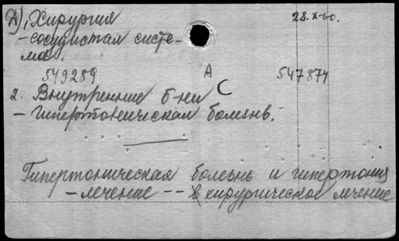 А) Хирургия 28.X-60.
- сосудистая систе-
ма.
549289 А 547874
2. Внутренние б-ни С
- Гипертоническая болезнь.
Гипертоническая болезнь и гипертония
- лечение - - хирургическое лечение